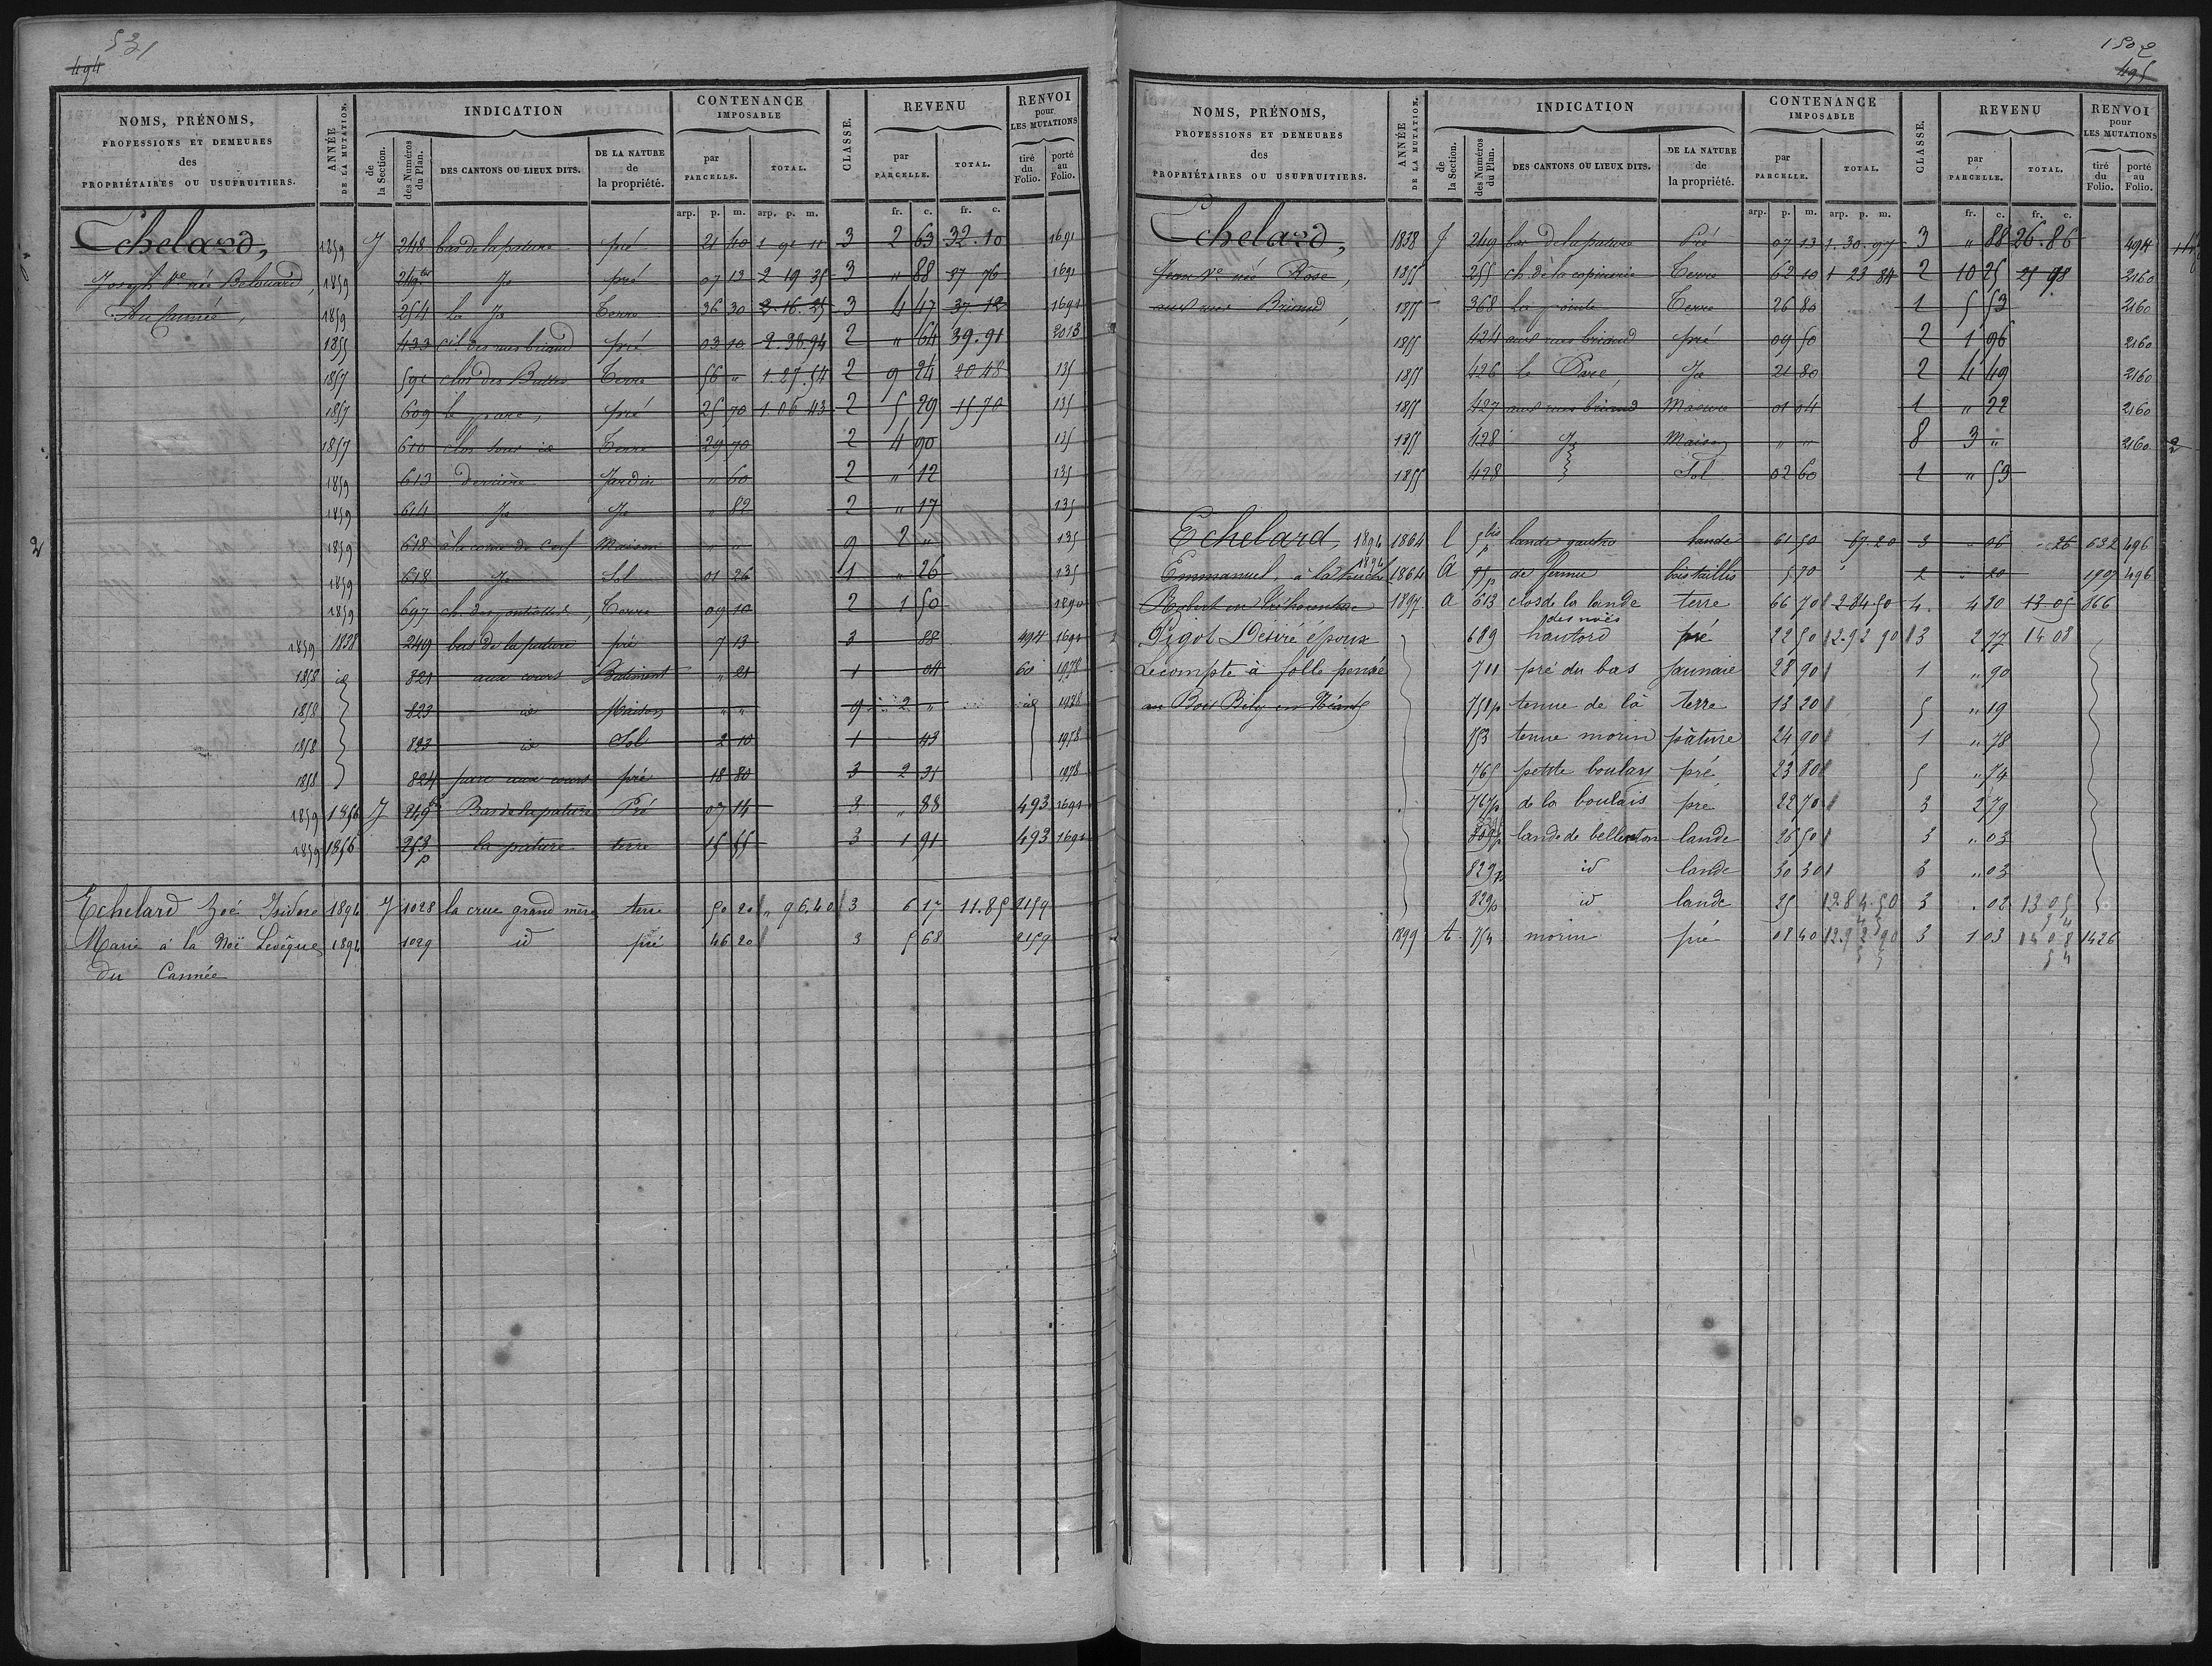 531
494
NOMS, PRÉNOMS, PROFESSIONS ET DEMEURES des PROPRIÉTAIRES OU USUFRUITIERS. ANNÉE DE LA MUTATION. INDICATION de la Section. des Numéros du Plan. DES CANTONS OU LIEUX DITS. DE LA NATURE de la propriété. CONTENANCE IMPOSABLE par PARCELLE. TOTAL. CLASSE. REVENU par PARCELLE. TOTAL. RENVOI pour LES MUTATIONS tiré du Folio. porté au Folio.
arp. p. m. arp. p. m. fr. c. fr. c.
Echelard, 1859 J 248 bas de la pature pré 21 40 1 91 11 3 2 63 32.10 1691
Joseph Ve née Belouard, 1859 249 bis Jd pré 07 13 2 19 35 3 " 88 37 76 1691
1859 254 La Jd Terre 36 30 2.16.25 3 4 47 37 12 1691
1855 433 pré 03 10 2.38.94 2 " 64 39.91 2013
1857 591 clos des Buttes Terre 56 " 1.27.54 2 9 24 20 48 135
1857 609 le parc, pré 25 70 1.06 43 2 5 29 15 70 135
1857 610 Terre 29 70 2 4 90 135
1859 613 Derrière Jardin " 60 2 " 12 135
1859 614 Jd Jd " 82 2 " 17 135
2 1859 618 à la corne de cerf Maison " " 9 2 " 135
1859 618 Jd Sol 01 26 1 " 26 135
1859 697 Terre 09 10 2 1 50 1890
1859 1838 249 bas de la pature pré 7 13 3 88 494 1691
1858 id 821 aux cours Batiment " 21 1 04 60 1978
1858 823 id Maison " " 9 2 " id 1978
1858 823 id Sol 2 10 1 43 1978
1858 824 parc aux cours pré 18 80 3 2 31 1978
1859 1856 J 249 bis Bas de la pature Pré 07 14 3 " 88 493 1691
1859 1856 253 p la pature terre 15 55 3 1 91 493 1691
Echelard Zoé Isidore 1894 J 1028 la crue grand mère terre 50 20 " 96.40 3 6 17 11.85 2159
Marie à la Noë Levêque 1894 1029 id pré 46 20 3 5 68 2159
du Cannée
1502
495
NOMS, PRÉNOMS, PROFESSIONS ET DEMEURES des PROPRIÉTAIRES OU USUFRUITIERS. ANNÉE DE LA MUTATION. INDICATION de la Section. des Numéros du Plan. DES CANTONS OU LIEUX DITS. DE LA NATURE de la propriété. CONTENANCE IMPOSABLE par PARCELLE. TOTAL. CLASSE. REVENU par PARCELLE. TOTAL. RENVOI pour LES MUTATIONS tiré du Folio. porté au Folio.
arp. p. m. arp. p. m. fr. c. fr. c.
Echelard, 1838 J 249 bas de la pature Pré 07 13 1.30.97 3 " 88 26.86 494
Jean Ve née Rose, 1855 255 Terre 62 10 1 23 84 2 10 25 25 98 2160
aux rues Briand, 1855 368 La pointe Terre 26 80 1 5 53 2160
1855 424 aux rues briand pré 09 50 2 1 96 2160
1855 426 le Parc, Jd 21 80 2 4 49 2160
1855 427 aux rues briand Masure 01 04 1 " 22 2160
1855 428 Jd Maison " " 8 3 " 2160 2
1855 428 Sol 02 60 1 " 53
Echelard, 1894 1864 5 bis p lande gautro lande 61 50 67.20 3 " 06 " 26 632 496
Emmanuel, à la 1894 1864 A p de ferme bois taillis 5 70 2 " 20 1997 496
1897 A 613 clos de la lande terre 66 70 2 84 50 4 4 80 13 05 866
Pigot Désiré époux 689 hautord des noës pré 22 50 2.92 90 3 2 77 14 08
Lecompte à folle pensée 711 pré du bas jaunaie 28 90 1 " 90
751 p tenue de là terre 13 20 5 " 19
753 tenue morin pâture 24 90 1 " 78
765 petite boulay pré 23 80 5 " 74
767 p de la boulais pré 22 70 3 2 79
809 p lande de bellenton lande 26 50 3 " 03
829 p id lande 30 30 3 " 03
829 p id lande 25 2.84.50 3 " 02 13 05
1899 A 754 morin pré 08 40 2.92 90 3 1 03 14 08 1426